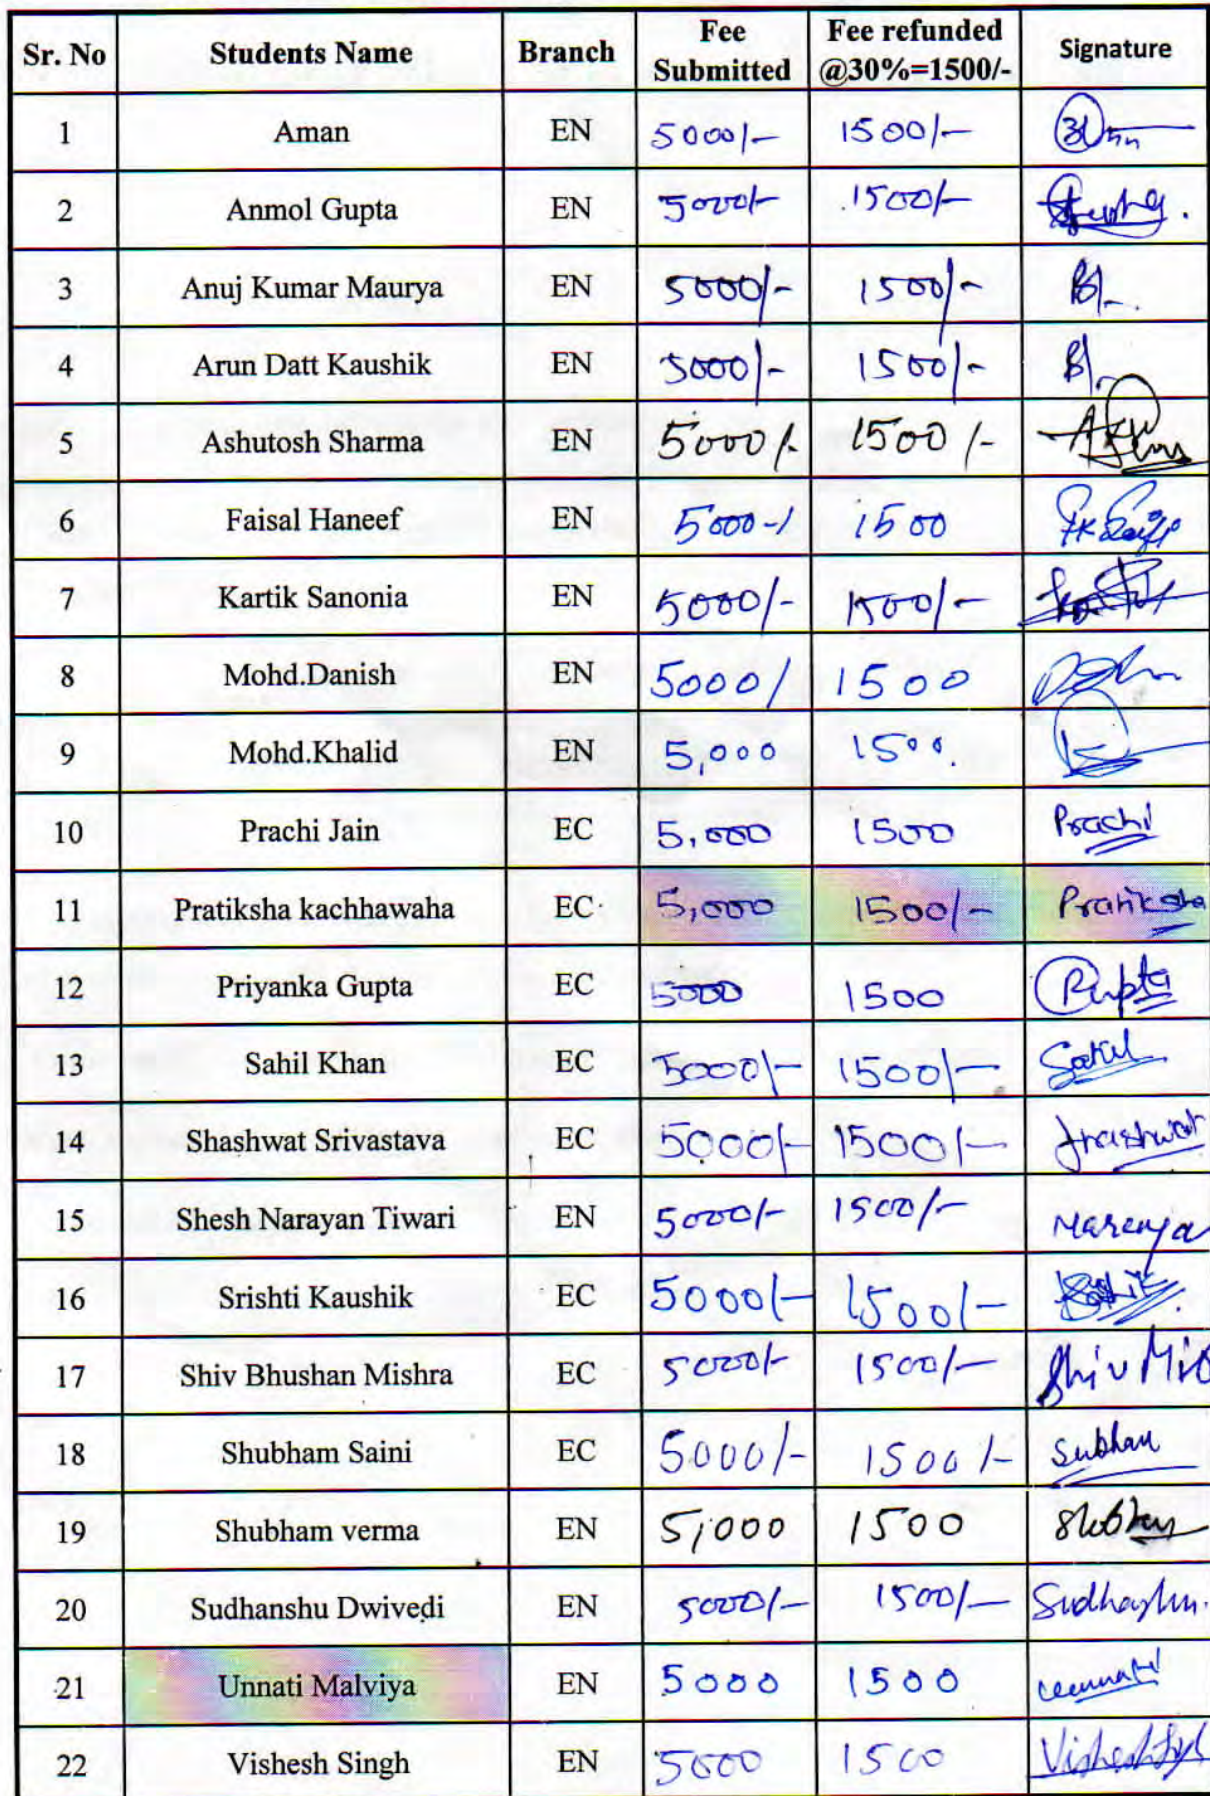 Sr. No Students Name Branch Fee Submitted Fee refunded @30%=1500/- Signature
1 Aman EN 5000/- 1500/-
2 Anmol Gupta EN 5000/- 1500/-
3 Anuj Kumar Maurya EN 5000/- 1500/-
4 Arun Datt Kaushik EN 5000/- 1500/-
5 Ashutosh Sharma EN 5000/- 1500/-
6 Faisal Haneef EN 5000-/ 1500
7 Kartik Sanonia EN 5000/- 1500/-
8 Mohd.Danish EN 5000/ 1500
9 Mohd.Khalid EN 5,000 1500
10 Prachi Jain EC 5,000 1500 Prachi
11 Pratiksha kachhawaha EC 5,000 1500/- Pratiksha
12 Priyanka Gupta EC 5000 1500
13 Sahil Khan EC 5000/- 1500/- Sahil
14 Shashwat Srivastava EC 5000/- 1500/- Shashwat
15 Shesh Narayan Tiwari EN 5000/- 1500/-
16 Srishti Kaushik EC 5000/- 1500/-
17 Shiv Bhushan Mishra EC 5000/- 1500/- Shiv
18 Shubham Saini EC 5000/- 1500/-
19 Shubham verma EN 5,000 1500
20 Sudhanshu Dwivedi EN 5000/- 1500/- Sudhanshu
21 Unnati Malviya EN 5000 1500
22 Vishesh Singh EN 5000 1500